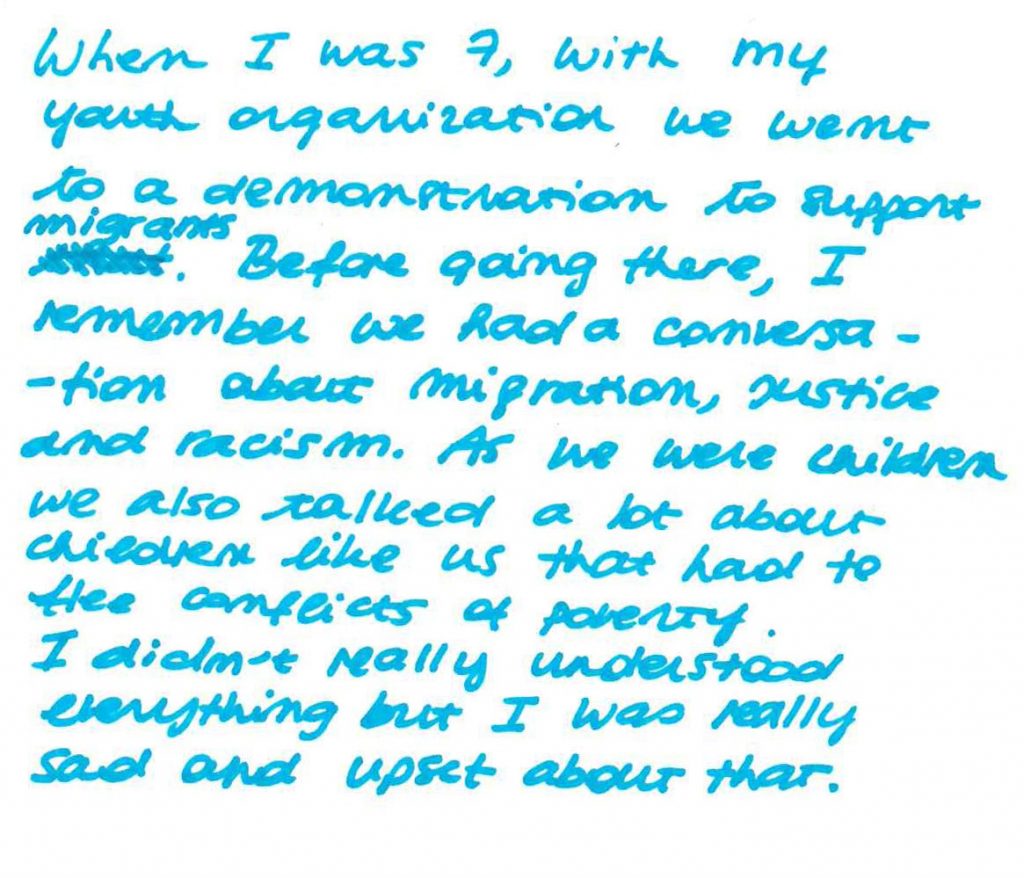 When I was 7, with my
youth organization we went
to a demonstration to support
migrants
. Before going there, I
remember we had a conversa-
-tion about migration, justice
and racism. As we were children
we also talked a lot about
children like us that had to
flee conflicts of poverty.
I didn't really understood
everything but I was really
sad and upset about that.